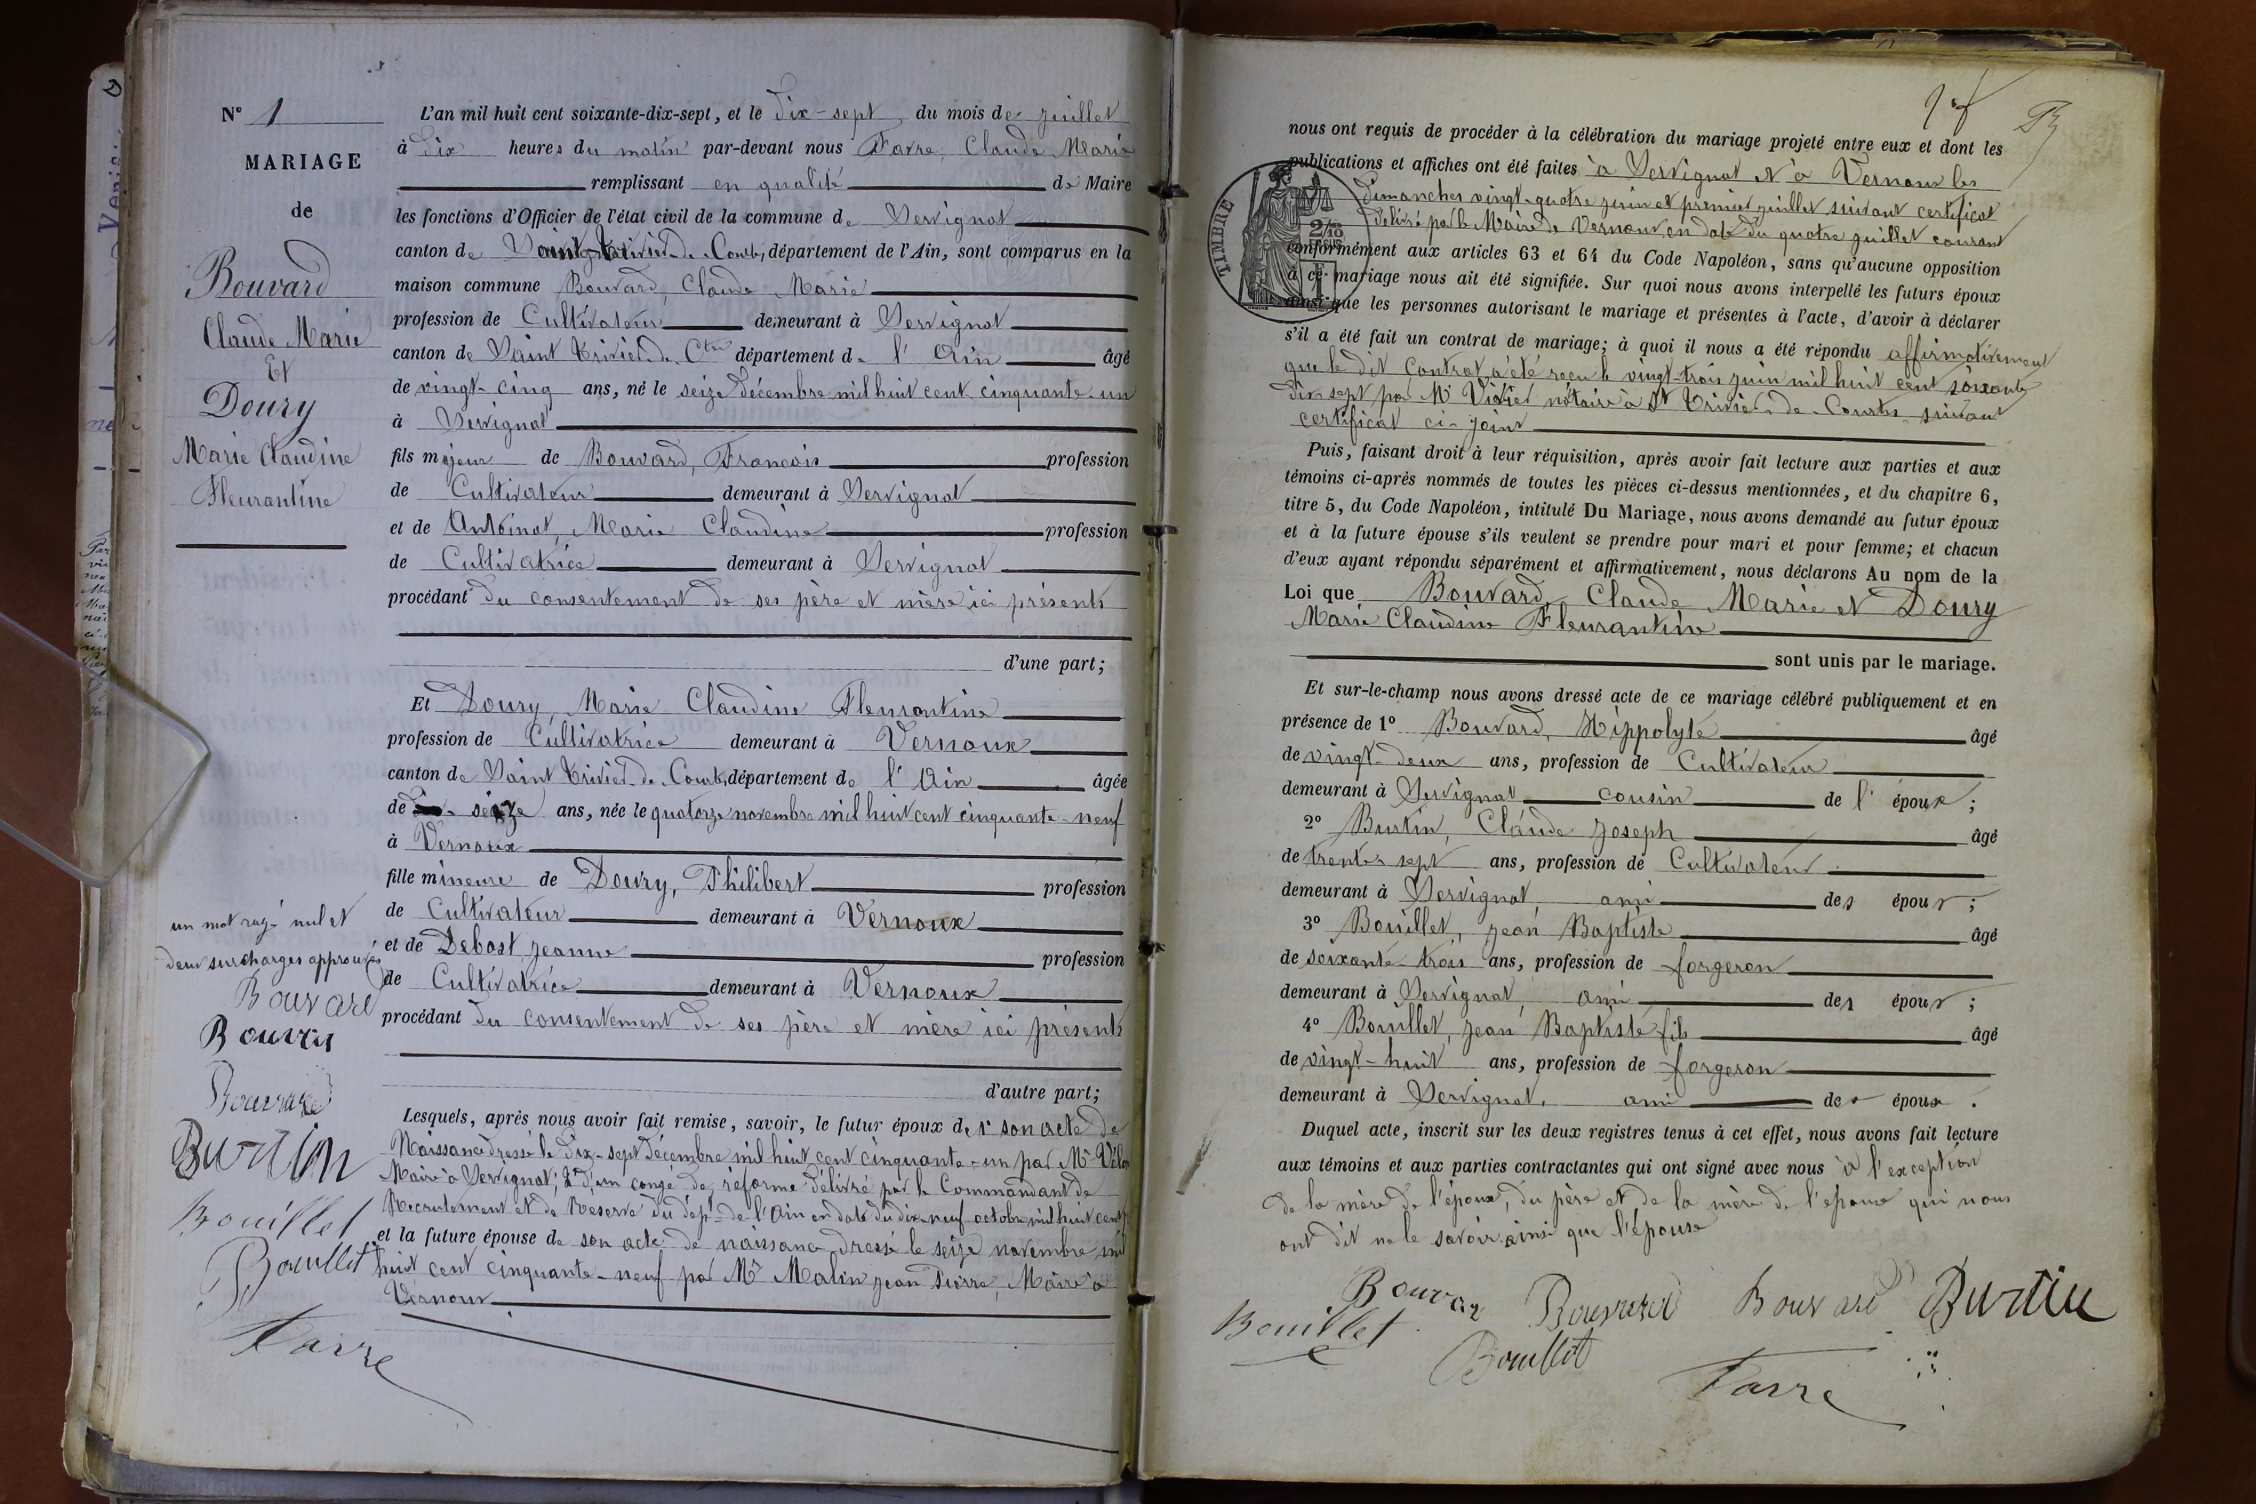 N° 1
MARIAGE
de
Bouvard
Claude Marie
Et
Doury
Marie Claudine
Fleurantine
un mot rayé nul et
deux surcharges approuvés
Bouvard
Bouvard
Bouvard
Burtin
Bouillet
Bouillet
Favre
L'an mil huit cent soixante-dix-sept, et le dix-sept du mois de juillet
à dix heures du matin par-devant nous Favre, Claude Marie
remplissant en qualité de Maire
les fonctions d'Officier de l'état civil de la commune de Servignat
canton de Saint-Trivier-de-Courtes, département de l'Ain, sont comparus en la
maison commune Bouvard, Claude Marie
profession de Cultivateur demeurant à Servignat
canton de Saint Trivier-de-Ctes département de l'Ain âgé
de vingt-cinq ans, né le seize décembre mil huit cent cinquante-un
à Servignat
fils majeur de Bouvard, François profession
de Cultivateur demeurant à Servignat
et de Antoinat, Marie Claudine profession
de Cultivatrice demeurant à Servignat
procédant du consentement de ses père et mère ici présents
d'une part;
Et Doury, Marie Claudine Fleurantine
profession de Cultivatrice demeurant à Vernoux
canton de Saint Trivier-de-Courtes, département de l'Ain âgée
de seize ans, née le quatorze novembre mil huit cent cinquante-neuf
à Vernoux
fille mineure de Doury, Philibert profession
de Cultivateur demeurant à Vernoux
et de Debost, Jeanne profession
de Cultivatrice demeurant à Vernoux
procédant du consentement de ses père et mère ici présents
d'autre part;
Lesquels, après nous avoir fait remise, savoir, le futur époux de 1° son acte de
Naissance dressé le dix-sept décembre mil huit cent cinquante-un par Mr
Maire à Servignat; 2° d'un congé de réforme délivré par le Commandant de
Recrutement et de Réserve du dépt de l'Ain en date du dix-neuf octobre mil huit cent
et la future épouse de son acte de naissance dressé le seize novembre mil
huit cent cinquante-neuf par Mr Malin Jean Pierre, Maire à
Vernoux
nous ont requis de procéder à la célébration du mariage projeté entre eux et dont les
publications et affiches ont été faites à Servignat et à Vernoux les
dimanches vingt-quatre juin et premier juillet suivant certificat
délivré par le Maire de Vernoux en date du quatre juillet courant
TIMBRE
conformément aux articles 63 et 64 du Code Napoléon, sans qu'aucune opposition
à ce mariage nous ait été signifiée. Sur quoi nous avons interpellé les futurs époux
ainsi que les personnes autorisant le mariage et présentes à l'acte, d'avoir à déclarer
s'il a été fait un contrat de mariage; à quoi il nous a été répondu affirmativement
que le dit Contrat a été reçu le vingt-trois juin mil huit cent soixante
dix-sept par Me Vivier notaire à St Trivier-de-Courtes suivant
certificat ci-joint
Puis, faisant droit à leur réquisition, après avoir fait lecture aux parties et aux
témoins ci-après nommés de toutes les pièces ci-dessus mentionnées, et du chapitre 6,
titre 5, du Code Napoléon, intitulé Du Mariage, nous avons demandé au futur époux
et à la future épouse s'ils veulent se prendre pour mari et pour femme; et chacun
d'eux ayant répondu séparément et affirmativement, nous déclarons Au nom de la
Loi que Bouvard Claude Marie et Doury
Marie Claudine Fleurantine
sont unis par le mariage.
Et sur-le-champ nous avons dressé acte de ce mariage célébré publiquement et en
présence de 1° Bouvard, Hippolyte âgé
de vingt-deux ans, profession de Cultivateur
demeurant à Servignat cousin de l'époux;
2° Burtin, Claude Joseph âgé
de trente-sept ans, profession de Cultivateur
demeurant à Servignat, ami des époux;
3° Bouillet, Jean Baptiste âgé
de soixante-trois ans, profession de forgeron
demeurant à Servignat, ami des époux;
4° Bouillet, Jean Baptiste fils âgé
de vingt-huit ans, profession de forgeron
demeurant à Servignat, ami des époux.
Duquel acte, inscrit sur les deux registres tenus à cet effet, nous avons fait lecture
aux témoins et aux parties contractantes qui ont signé avec nous à l'exception
de la mère de l'époux, du père et de la mère de l'épouse qui nous
ont dit ne le savoir ainsi que l'épouse
Bouvar Bouvard Bouvard Burtin
Bouillet Bouillet
Favre